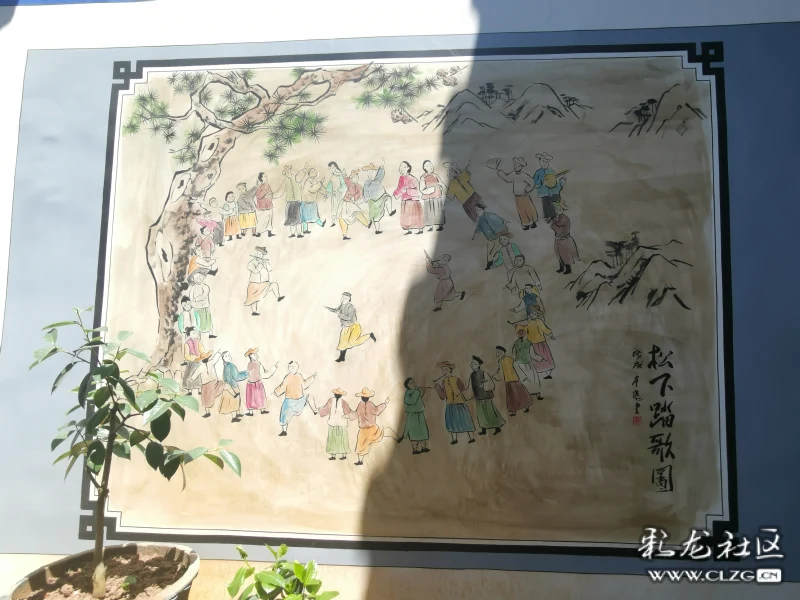 松下踏歌圖
戊戌
彩龙社区
WWW.CLZG.CN